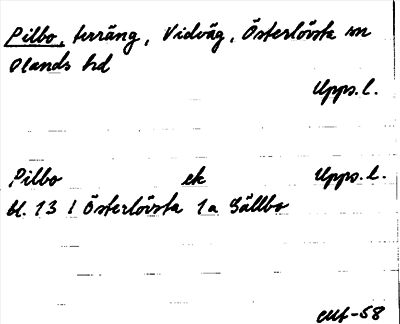 Pilbo, terräng, Vidväg, Österlövsta sn
Olands hd
Upps. l.
Pilbo ek Upps. l.
bl. 13 I Österlövsta 1a Sällbo
-58